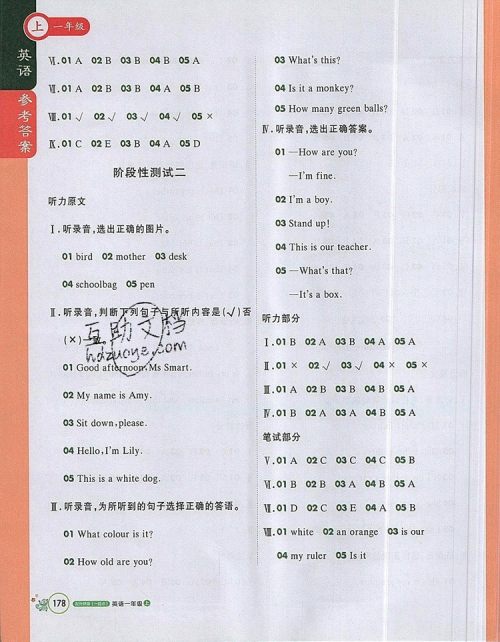 上 一年级
英语
参考答案
Ⅵ.01 A 02 B 03 B 04 B 05 A
Ⅶ.01 A 02 B 03 B 04 A 05 B
Ⅷ.01 √ 02 √ 03 √ 04 √ 05 ×
Ⅸ.01 C 02 E 03 B 04 A 05 D
阶段性测试二
听力原文
Ⅰ.听录音,选出正确的图片。
01 bird 02 mother 03 desk
04 schoolbag 05 pen
Ⅱ.听录音,判断下列句子与所听内容是(√)否
(×)
互助文档
hdzuoye.com
01 Good afternoon,Ms Smart.
02 My name is Amy.
03 Sit down,please.
04 Hello,I'm Lily.
05 This is a white dog.
Ⅲ.听录音,为所听到的句子选择正确的答语。
01 What colour is it?
02 How old are you?
03 What's this?
04 Is it a monkey?
05 How many green balls?
Ⅳ.听录音,选出正确答案。
01 —How are you?
—I'm fine.
02 I'm a boy.
03 Stand up!
04 This is our teacher.
05 —What's that?
—It's a box.
听力部分
Ⅰ.01 B 02 A 03 B 04 A 05 A
Ⅱ.01 × 02 √ 03 √ 04 × 05 ×
Ⅲ.01 A 02 B 03 B 04 A 05 B
Ⅳ.01 B 02 A 03 A 04 B 05 A
笔试部分
Ⅴ.01 A 02 C 03 C 04 C 05 B
Ⅵ.01 B 02 B 03 A 04 B 05 A
Ⅶ.01 D 02 C 03 E 04 A 05 B
Ⅷ.01 white 02 an orange 03 is our
04 my ruler 05 Is it
178 英语一年级 上